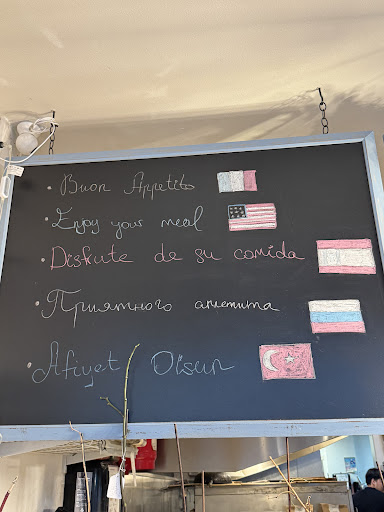 • Buon Appetito
• Enjoy your meal
• Disfrute de su comida
• Приятного аппетита
• Afiyet Olsun